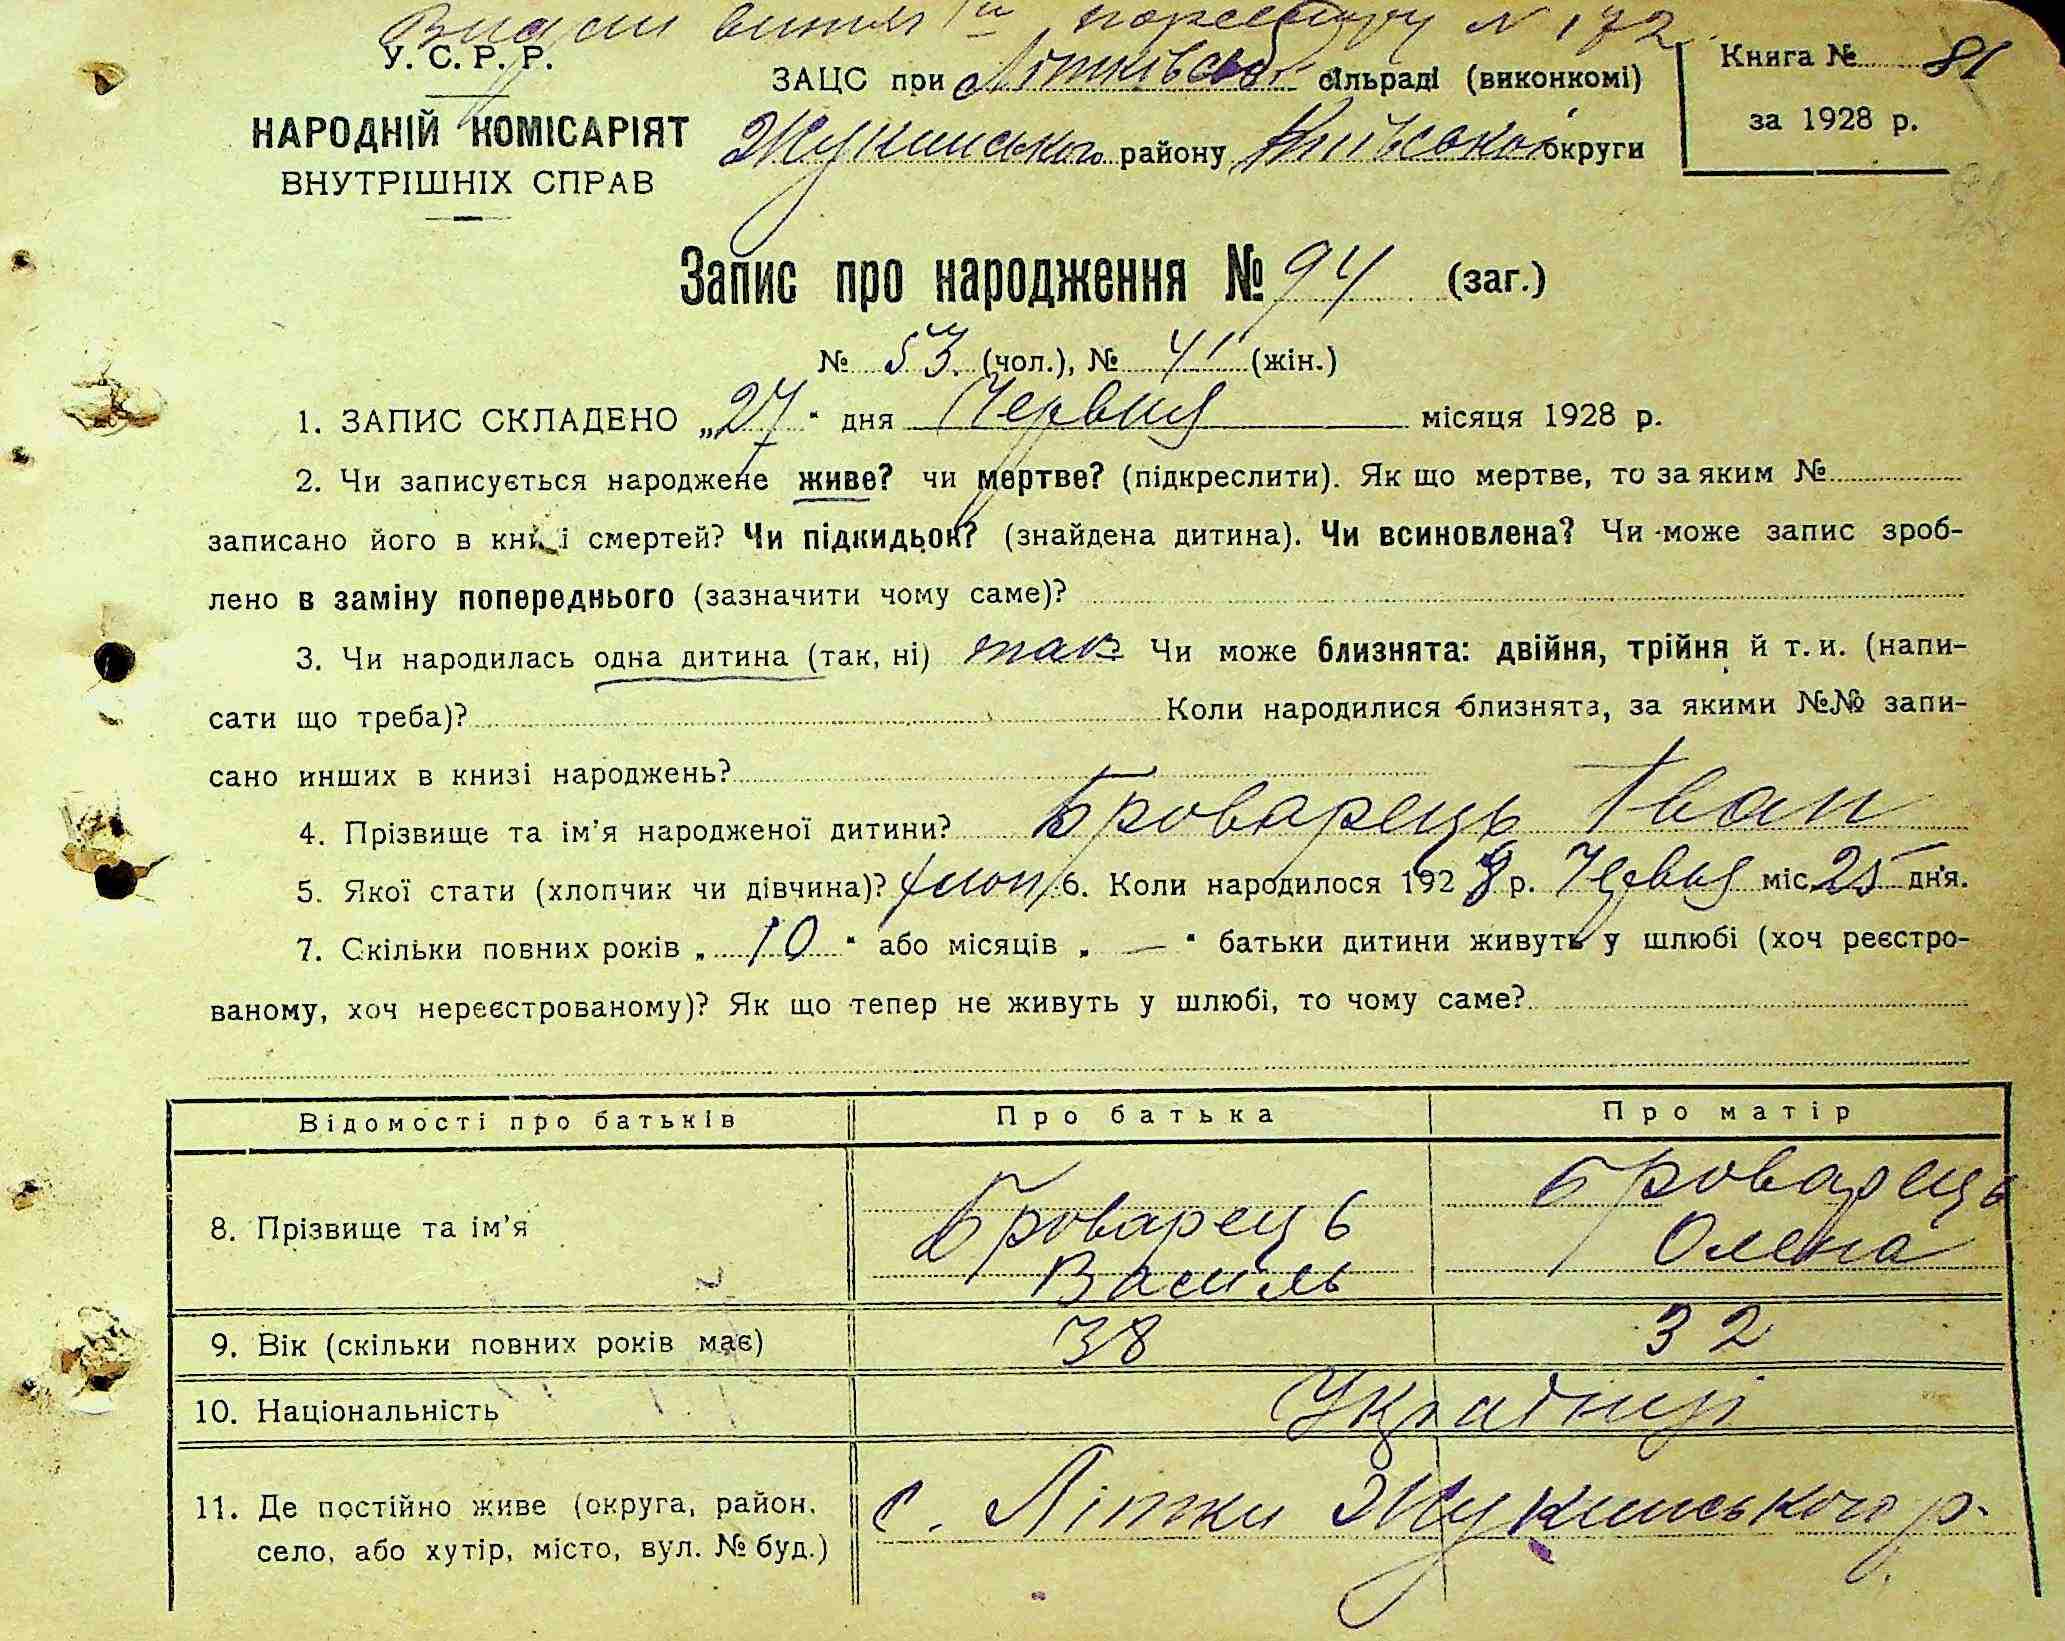 Видан витяг й по реєстру N 172.
У. С. Р. Р.
НАРОДНІЙ КОМІСАРІЯТ
ВНУТРІШНІХ СПРАВ
ЗАЦС при Літківській сільраді (виконкомі)
Жукинського району Київської округи
Книга № 81
за 1928 р.
Запис про народження № 94 (заг.)
№ 53 (чол.), № 41 (жін.)
1. ЗАПИС СКЛАДЕНО „27“ дня Червня місяця 1928 р.
2. Чи записується народжене живе? чи мертве? (підкреслити). Як що мертве, то за яким №
записано його в книзі смертей? Чи підкидьок? (знайдена дитина). Чи всиновлена? Чи може запис зроб-
лено в заміну попереднього (зазначити чому саме)?
3. Чи народилась одна дитина (так, ні) так Чи може близнята: двійня, трійня й т. и. (напи-
сати що треба)? Коли народилися близнята, за якими №№ запи-
сано инших в книзі народжень?
4. Прізвище та ім'я народженої дитини? Броварець Іван
5. Якої стати (хлопчик чи дівчина)? хлоп. 6. Коли народилося 1928 р. Червня міс. 25 дня.
7. Скільки повних років „10“ або місяців „—“ батьки дитини живуть у шлюбі (хоч реєстро-
ваному, хоч нереєстрованому)? Як що тепер не живуть у шлюбі, то чому саме?
Відомості про батьків Про батька Про матір
8. Прізвище та ім'я Броварець Василь Броварець Олена
9. Вік (скільки повних років має) 38 32
10. Національність Українці
11. Де постійно живе (округа, район, село, або хутір, місто, вул. № буд.) с. Літки Жукинського р.